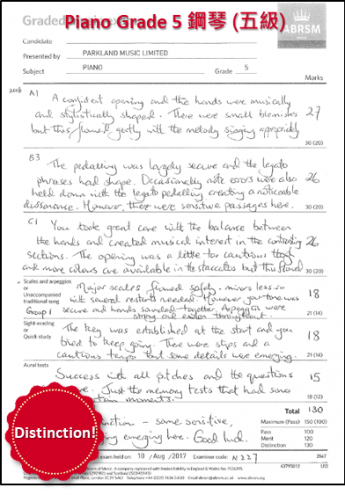 Graded
Piano Grade 5 鋼琴 (五級)
ABRSM
Candidate
Presented by PARKLAND MUSIC LIMITED
Subject PIANO Grade 5
Marks
A1
A confident opening and the hands were musically
and stylistically shaped. There were small blemishes 27
but this flowed gently with the melody singing
30 (20)
B3
The pedalling was largely secure and the legato
phrases had shape. Occasionally note errors were also 26
held down with the legato pedalling creating a noticeable
dissonance. However, there were sensitive passages here.
30 (20)
C1 You took great care with the balance between
the hands and created musical interest in the contrasting 26
sections. The opening was a little too cautious though
and more colours are available in the staccatos but this flowed
30 (20)
Scales and arpeggios
Major scales flowed safely, minors less so
Unaccompanied traditional song
with several restarts needed. However your tone was 18
Group 1 secure and hands sounded together. Arpeggios were
strong and even throughout.
21 (14)
Sight-reading or
Quick study
The key was established at the start and you
tried to keep going. There were slips and a 18
cautious tempo but some details were emerging.
21 (14)
Aural tests
Success with all pitches and the questions
Just the memory tests that had some 15
moments.
18 (12)
Total 130
Maximum (Pass) 150 (100)
Pass 100
Merit 120
Distinction 130
Distinction!
some sensitive,
emerging here. Good luck.
exam held on 10 / Aug / 2017 Examiner code: N227